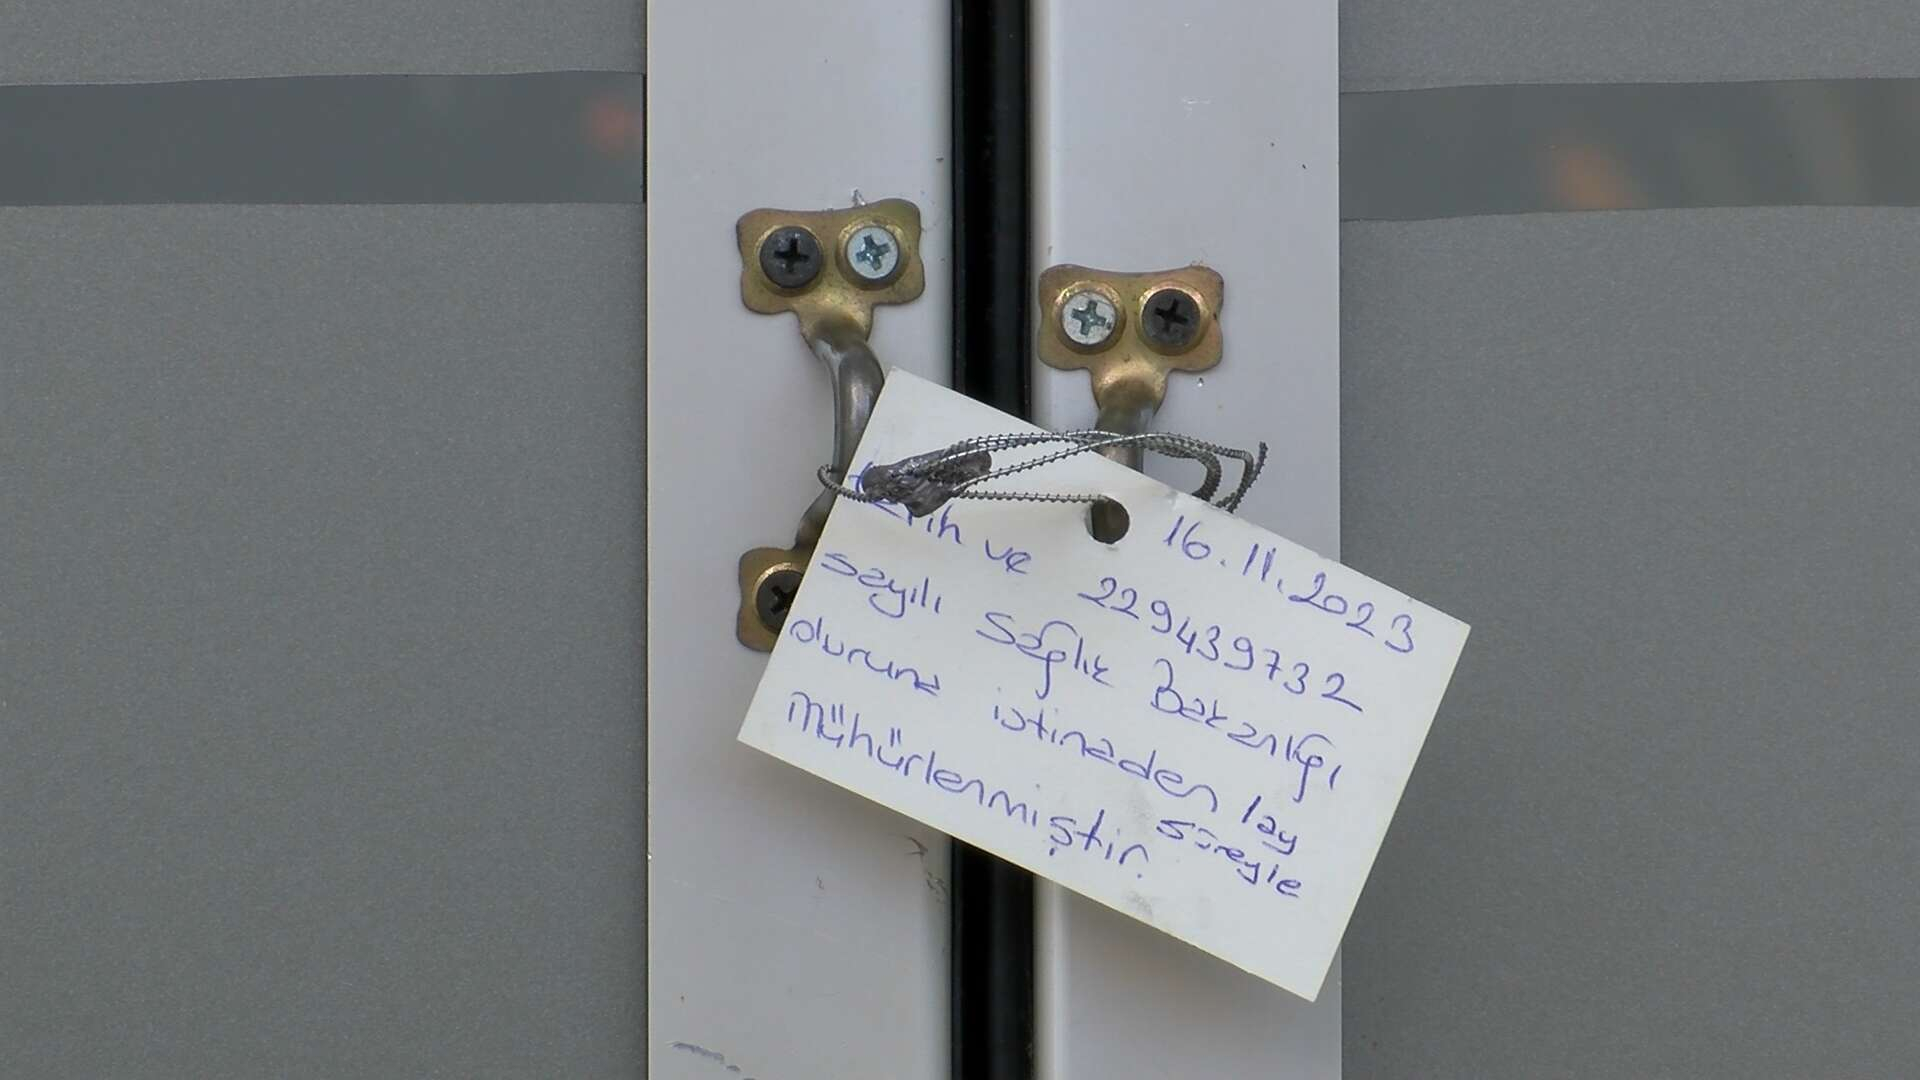 16.11.2023
tarih ve 229439732
sayılı Sağlık Bakanlığı
oluruna istinaden 1ay süreyle
Mühürlenmiştir.